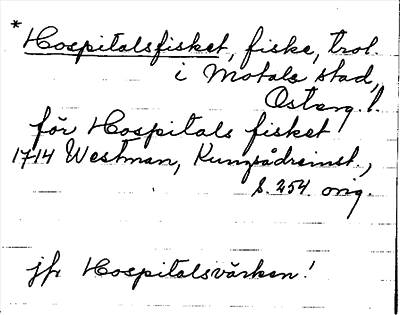 * Hospitalsfisket, fiske, trol.
i Motala stad,
Österg. l.
för Hospitals fisket
1714 Westman, Kungsådreinst.,
s. 254. orig.
jfr Hospitalsvärken!